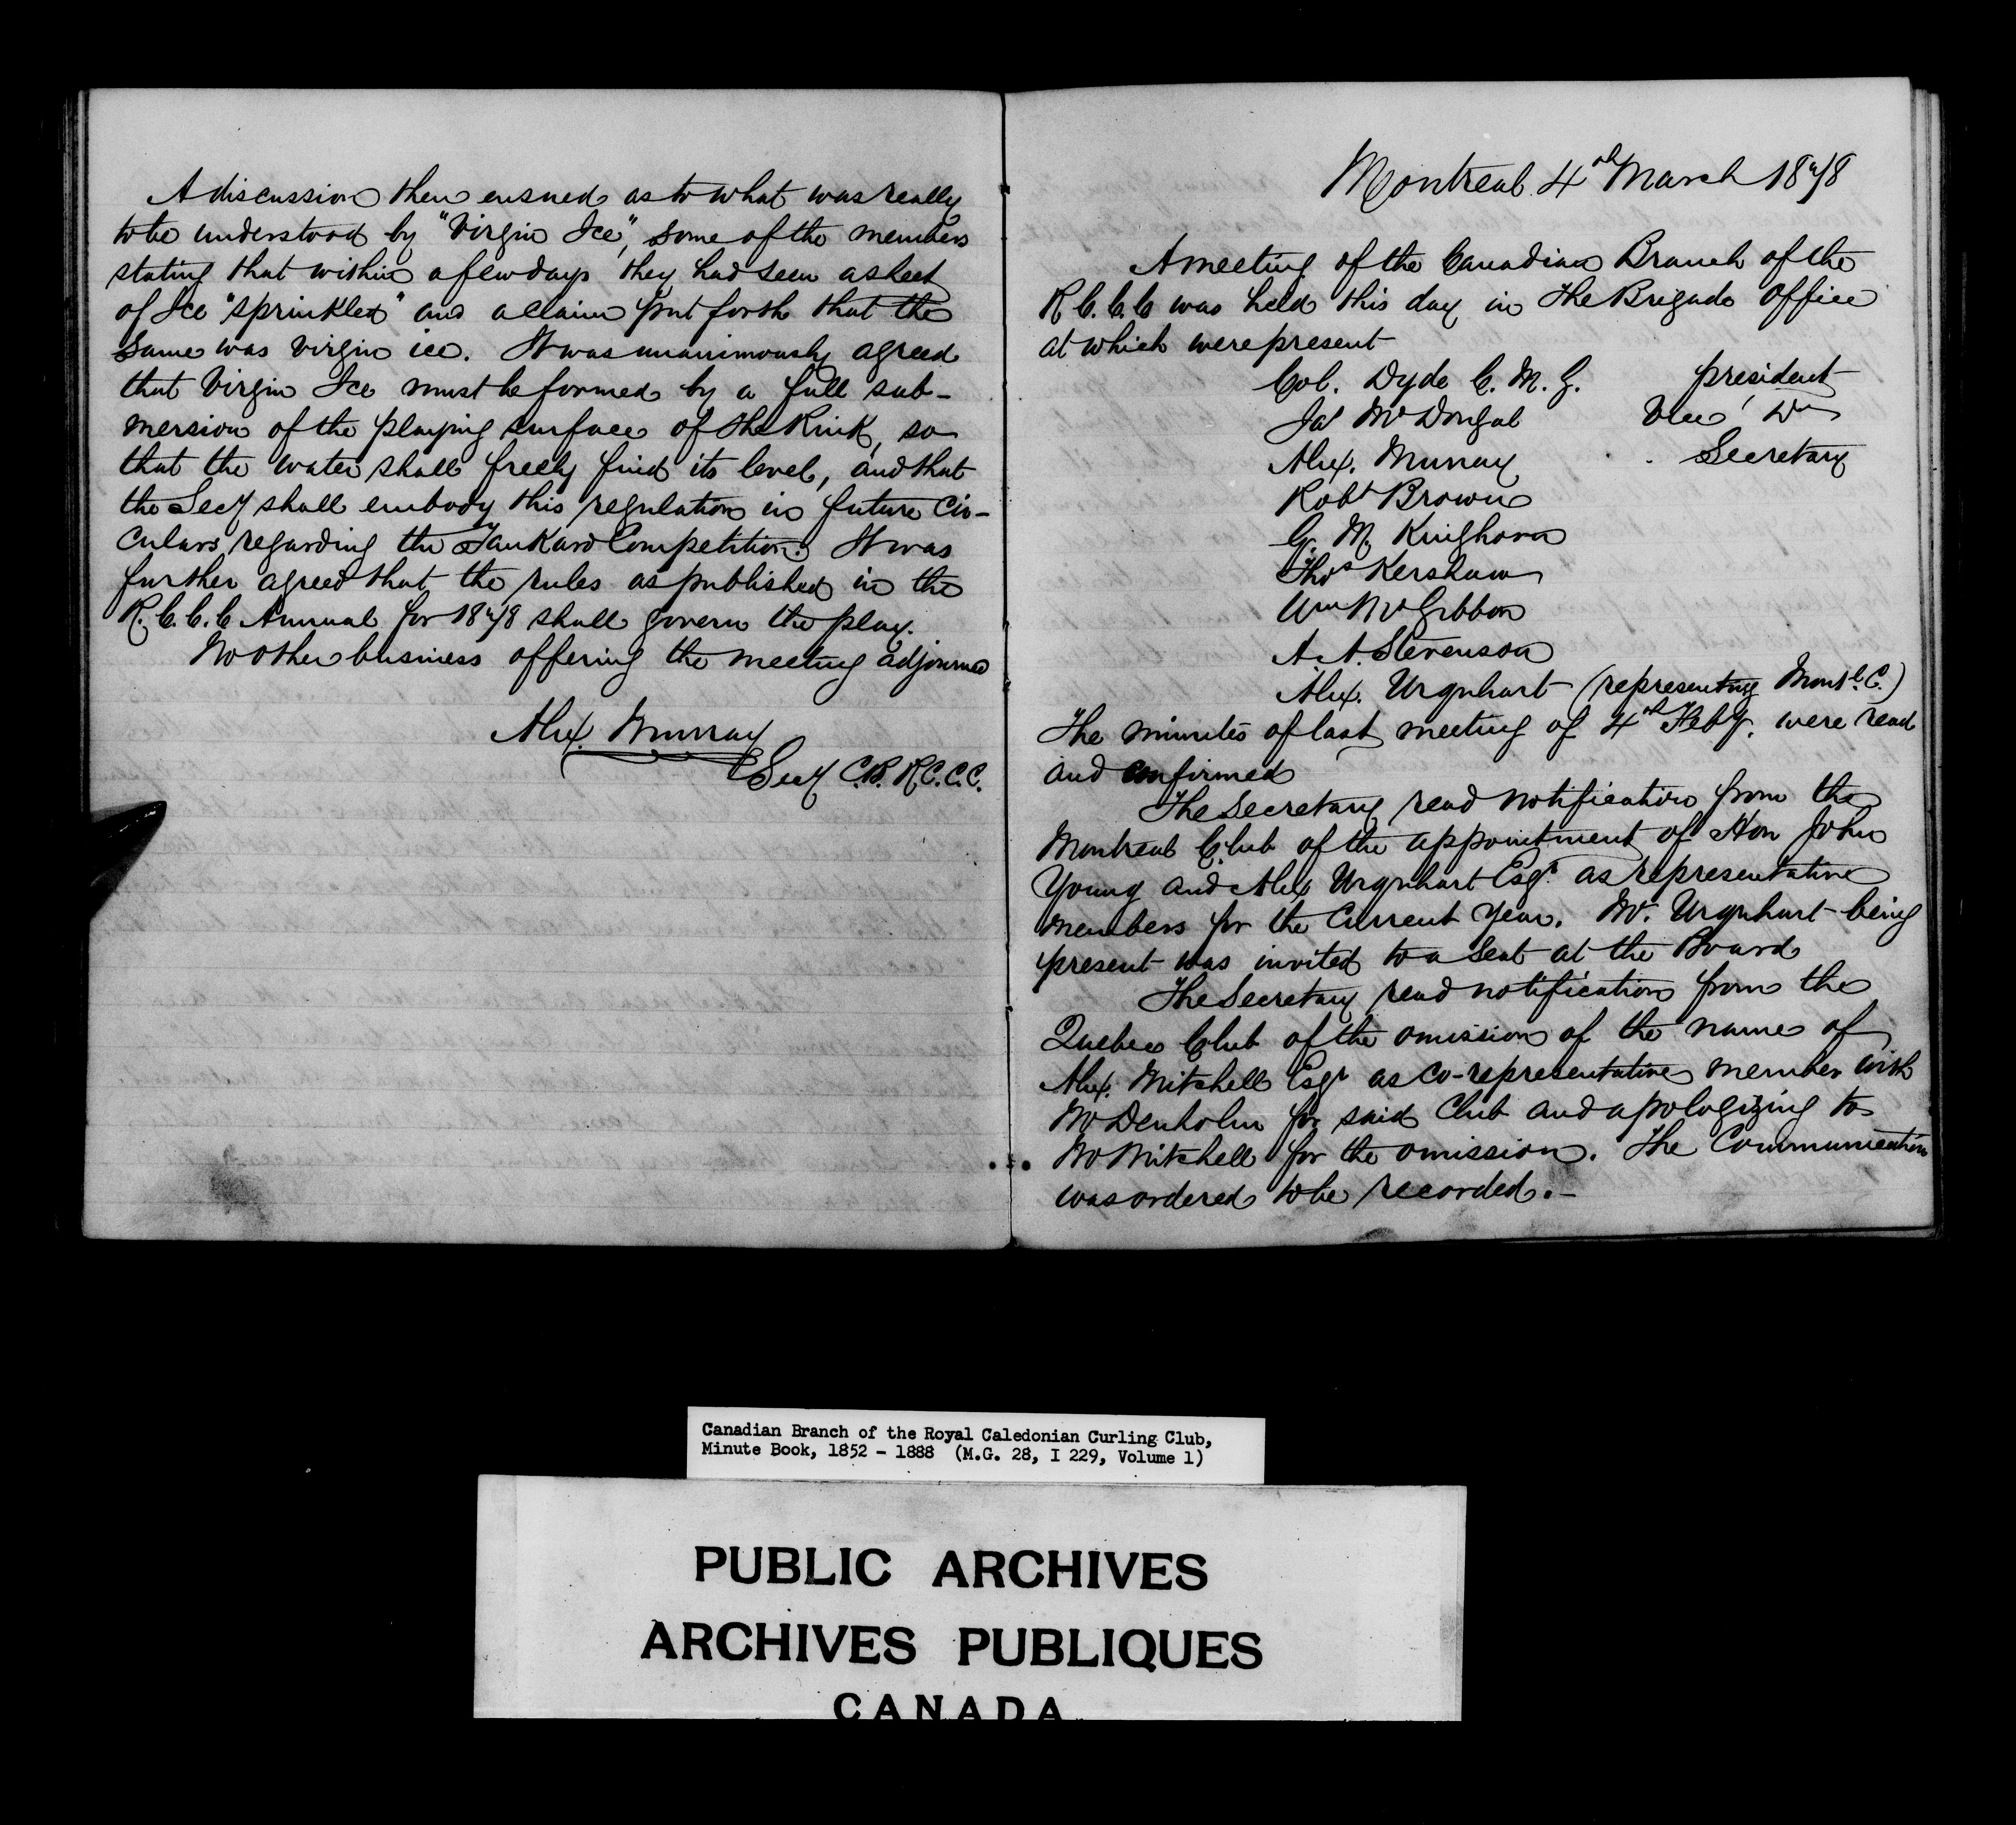 A discussion then ensued as to what was really
to be understood by "Virgin Ice", some of the members
stating that within a few days they had seen a sheet
of Ice "sprinkled" and a claim put forth that the
same was virgin ice. It was unanimously agreed
that Virgin Ice must be formed by a full sub-
mersion of the playing surface of the Rink, so
that the water shall freely find its level, and that
the Secy shall embody this regulation in future Cir-
culars regarding the Tankard Competition. It was
further agreed that the rules as published in the
R.C.C.C Annual for 1878 shall govern the play.
No other business offering the meeting adjourned
Alex. Murray
Secy C.B. R.C.C.C.
Montreal 4th March 1878
A meeting of the Canadian Branch of the
R C.C.C was held this day in the Brigade Office
at which were present
Col. Dyde C. M. G. president
Jas McDougal Vice Do
Alex. Murray Secretary
Robt Brown
G. M. Kinghorn
Thos Kershaw
Wm McGibbon
A. A. Stevenson
Alex. Urquhart (representing Montl. C.)
The minutes of last meeting of 4th Feby. were read
and confirmed
The Secretary read notification from the
Montreal Club of the appointment of Hon John
Young and Alex Urquhart Esqr. as representative
members for the Current Year. Mr. Urquhart being
present was invited to a seat at the Board
The Secretary read notification from the
Quebec Club of the omission of the name of
Alex. Mitchell Esqr as co-representative member with
Mr Denholm for said Club and apologizing to
Mr Mitchell for the omission. The Communication
was ordered to be recorded.-
Canadian Branch of the Royal Caledonian Curling Club,
Minute Book, 1852 - 1888 (M.G. 28, I 229, Volume 1)
PUBLIC ARCHIVES
ARCHIVES PUBLIQUES
CANADA